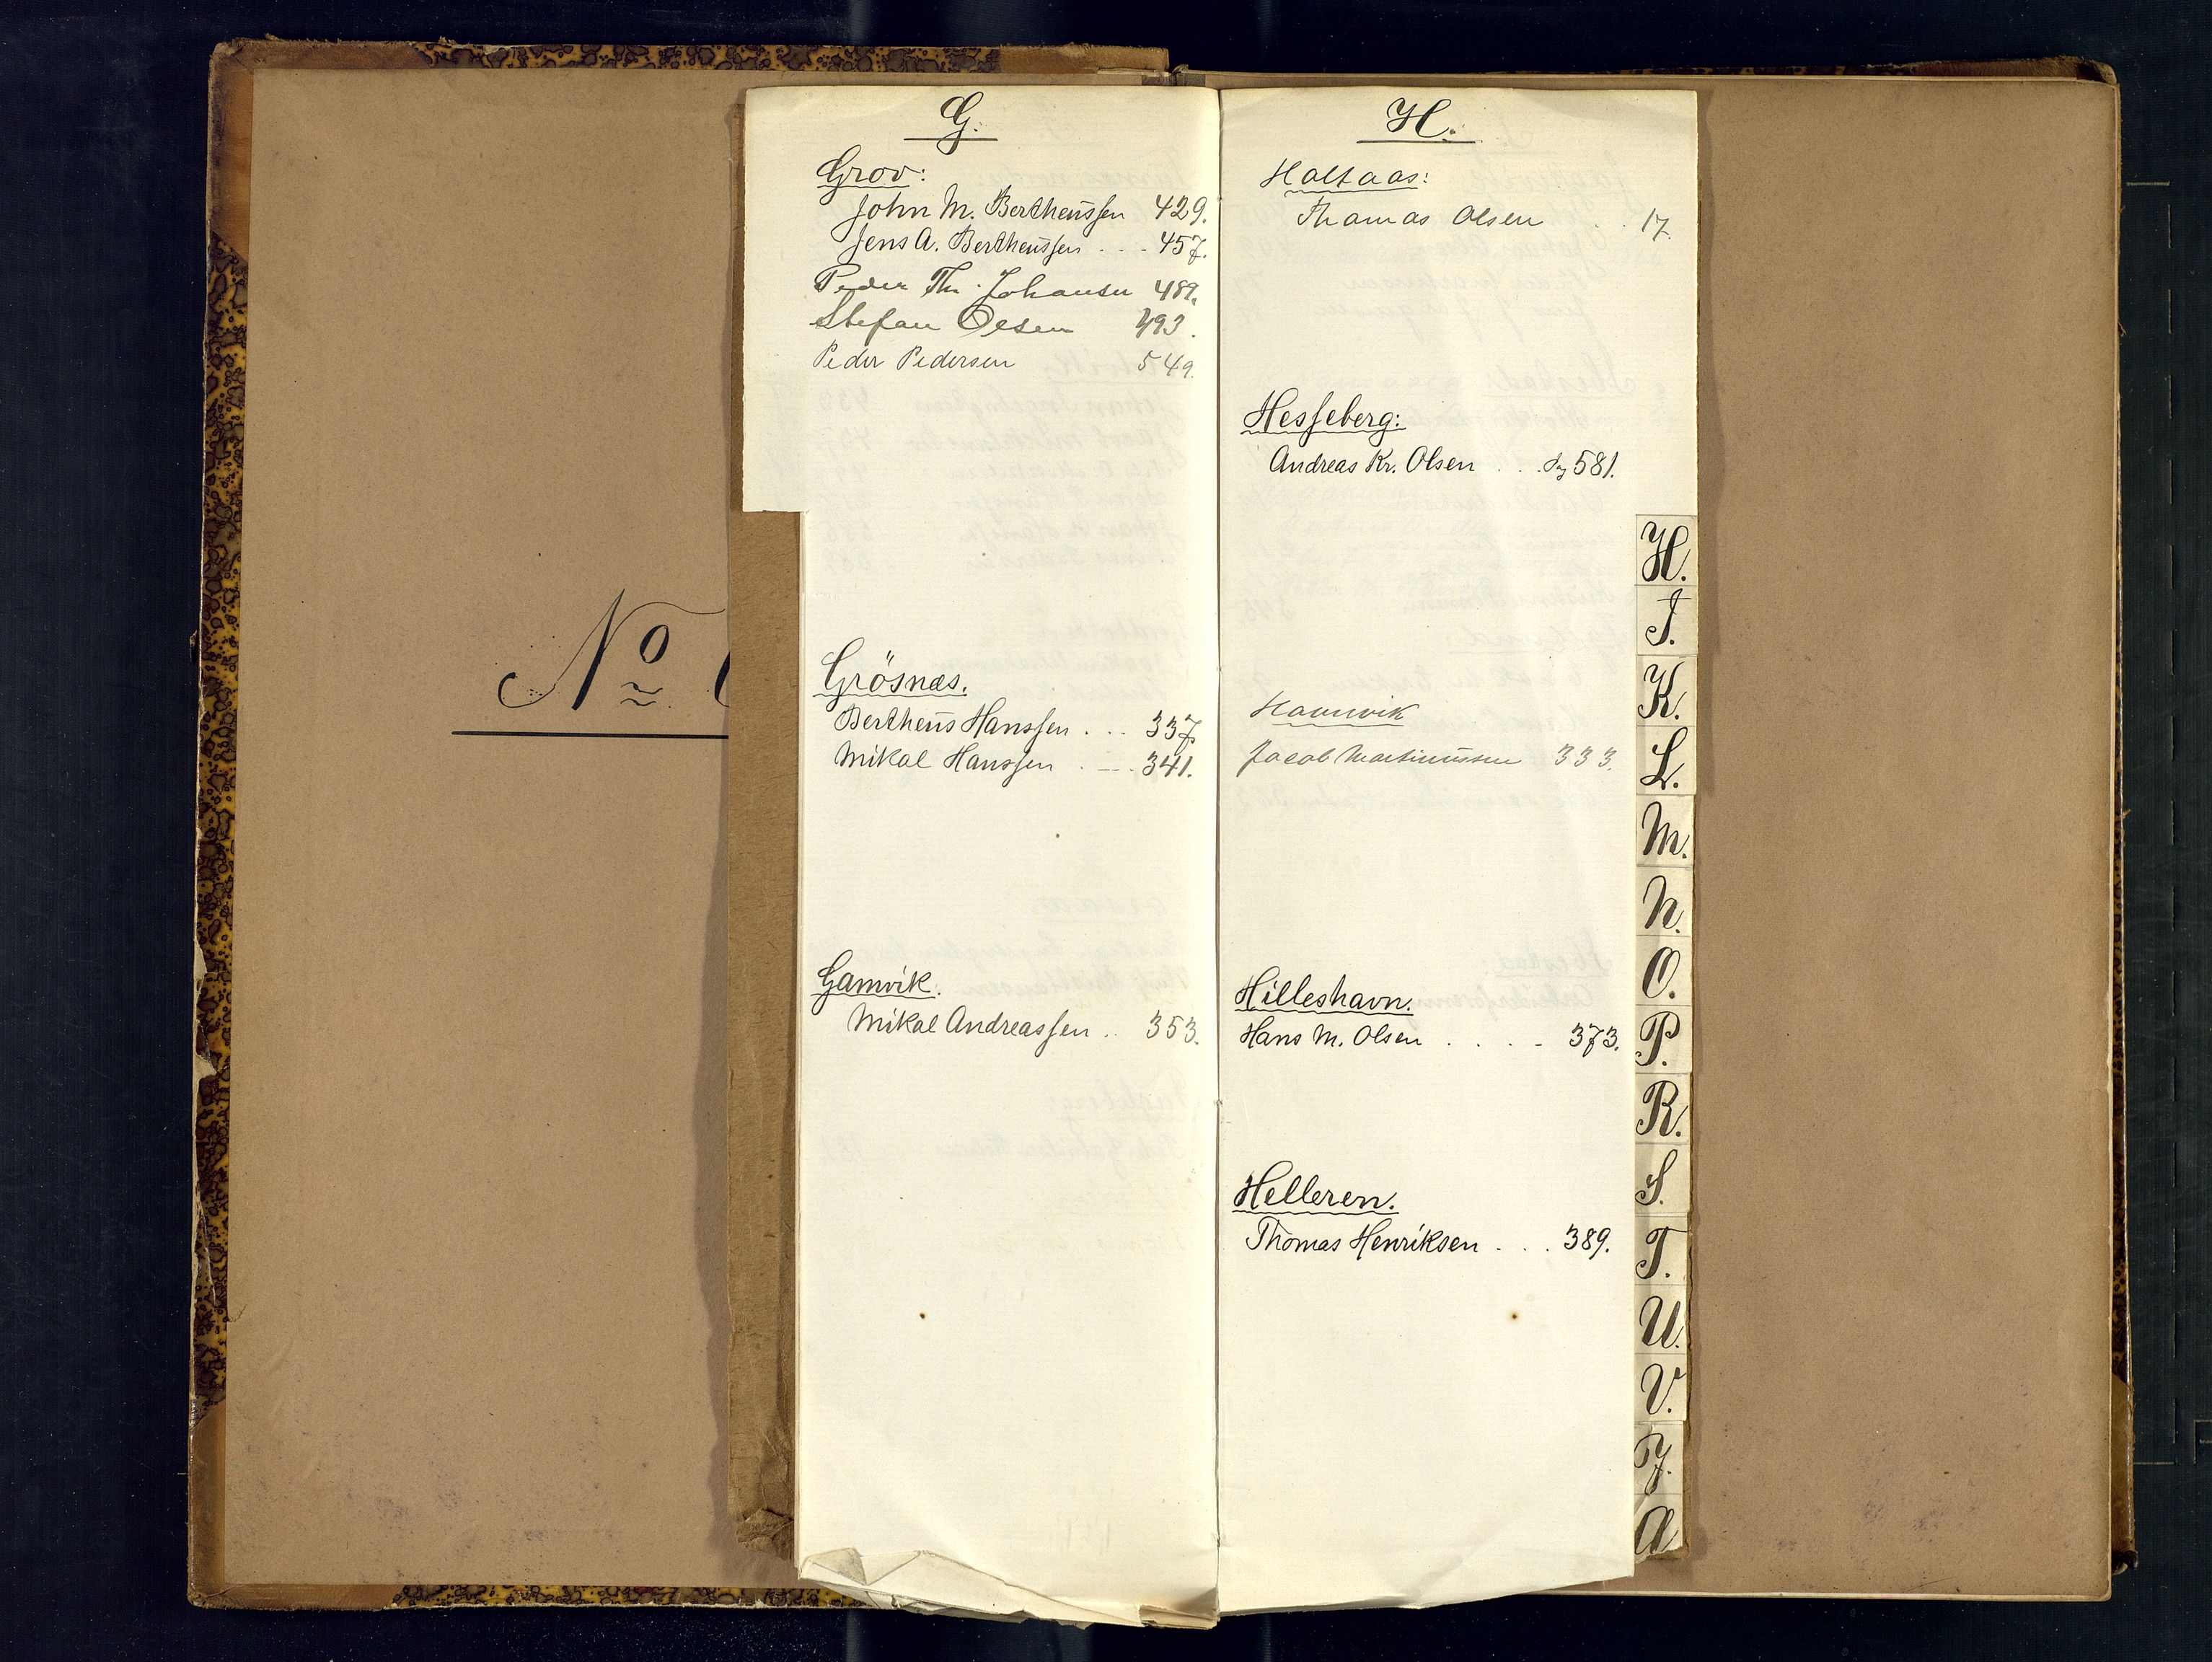 No
G.
Grov:
John M. Bertheussen 429.
Jens A. Bertheussen . . . 457.
Peder Th. Johansen 489.
Stefan Olsen 493.
Peder Pedersen 549.
Grösnæs.
Bertheus Hanssen . . . 337.
Mikal Hanssen . — . 341.
Gamvik.
Mikal Andreassen . . 353.
H.
Haltaas:
Thomas Olsen . . 17.
Hesseberg:
Andreas Kr. Olsen . . . 581.
Hamvik
Jacob Martinussen 333.
Hilleshavn.
Hans M. Olsen . . . - 373.
Helleren.
Thomas Henriksen . . . 389.
H.
I.
K.
L.
M.
N.
O.
P.
R.
S.
T.
U.
V.